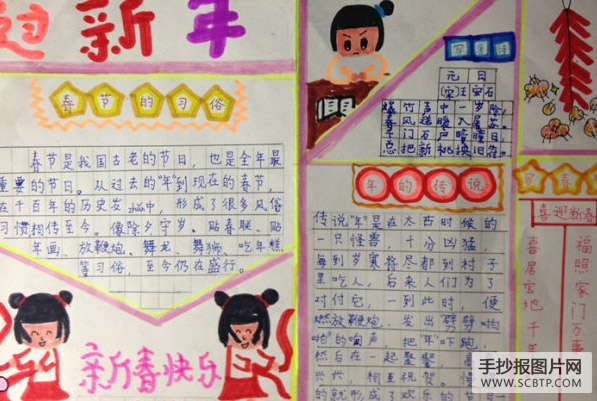 迎新年
春节的习俗
春节是我国古老的节日，也是全年最
重要的节日。从过去的"年"到现在的春节，
在千百年的历史发zhǎn中，形成了很多风俗
习惯相传至今。像除夕守岁、贴春联、贴
年画、放鞭炮、舞龙、舞狮、吃年糕
等习俗，至今仍在盛行。
新春快乐
元日
(宋)王安石
爆竹声中一岁除，
春风送暖入屠苏。
千门万户曈曈日，
总把新桃换旧符。
年的传说
传说"年"是在太古时候的
一只怪兽，十分凶猛，
每到岁寒将尽都到村子
里吃人，后来人们为了
对付它，一到此时，便
燃放鞭炮，发出"劈劈啪
啪"的响声，把"年"吓跑，
然后在一起聚餐，
兴兴，相互祝贺。
的就形成了欢乐的节日
喜迎新春
福照家门万事
喜居宝地千年
手抄报图片网
WWW.SCBTP.COM